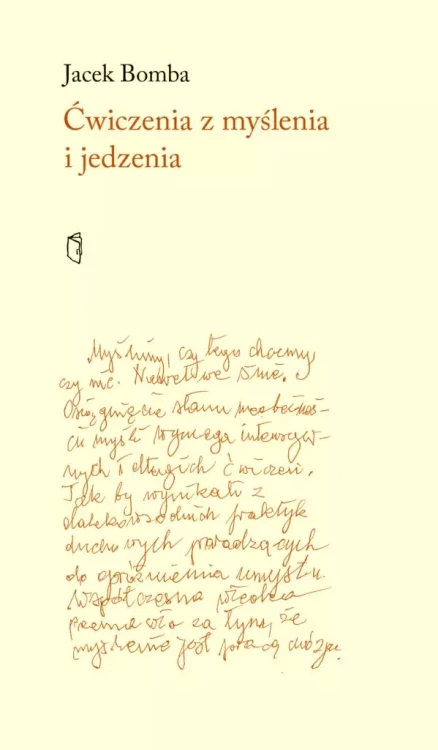 Jacek Bomba
Ćwiczenia z myślenia
i jedzenia
Myślimy, czy tego chcemy,
czy nie. Nawet we śnie.
Osiągnięcie stanu nieobecnoś-
ci myśli wymaga intensyw-
nych i długich ćwiczeń.
Tak by wynikało z
dalekowschodnich praktyk
duchowych prowadzących
do opróżnienia umysłu.
Współczesna wiedza
przemawia za tym, że
myślenie jest pracą mózgu.